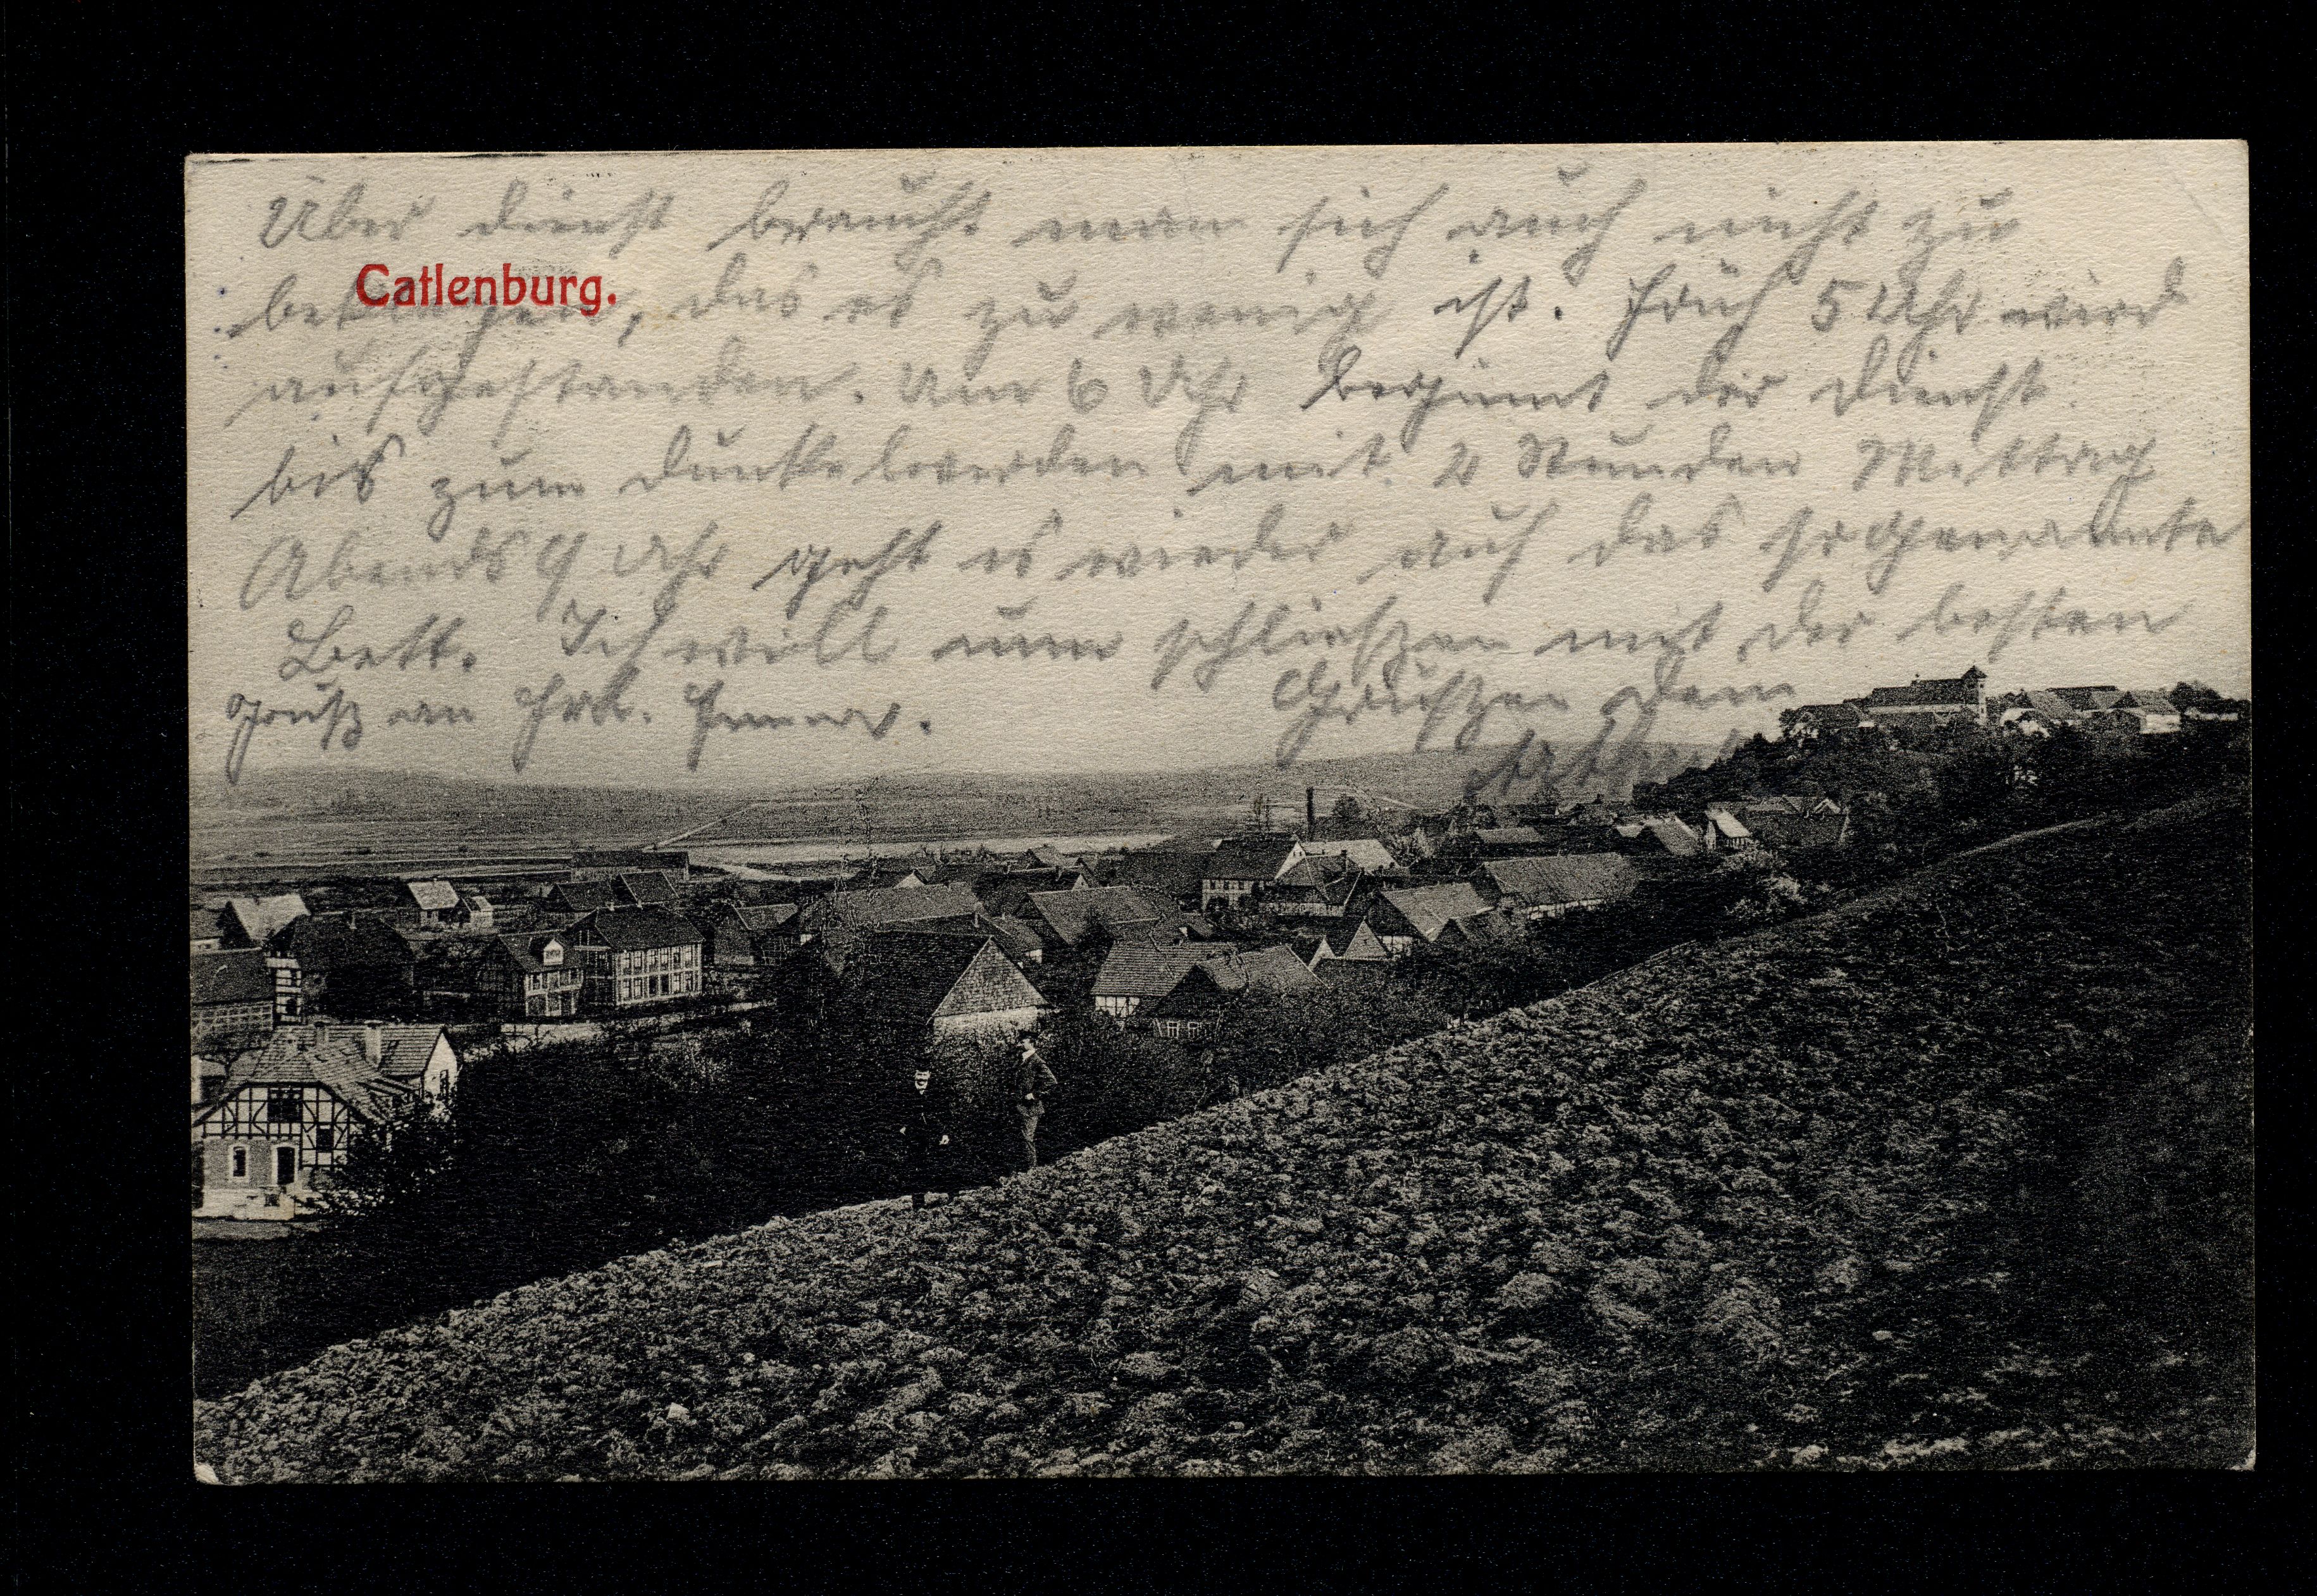 Über dienst braucht man sich auch nicht zu
Catlenburg.
beklagen, das es zu wenig ist. Früh 5 Uhr wird
aufgestanden. Um 6 Uhr beginnt der Dienst
bis zum dunkelwerden mit 2 Stunden Mittag
Abends 9 Uhr geht es wieder auf das sogenannte
Bett. Ich will nun schließen mit der besten
Grüßen Dein
Gruß an Frl.